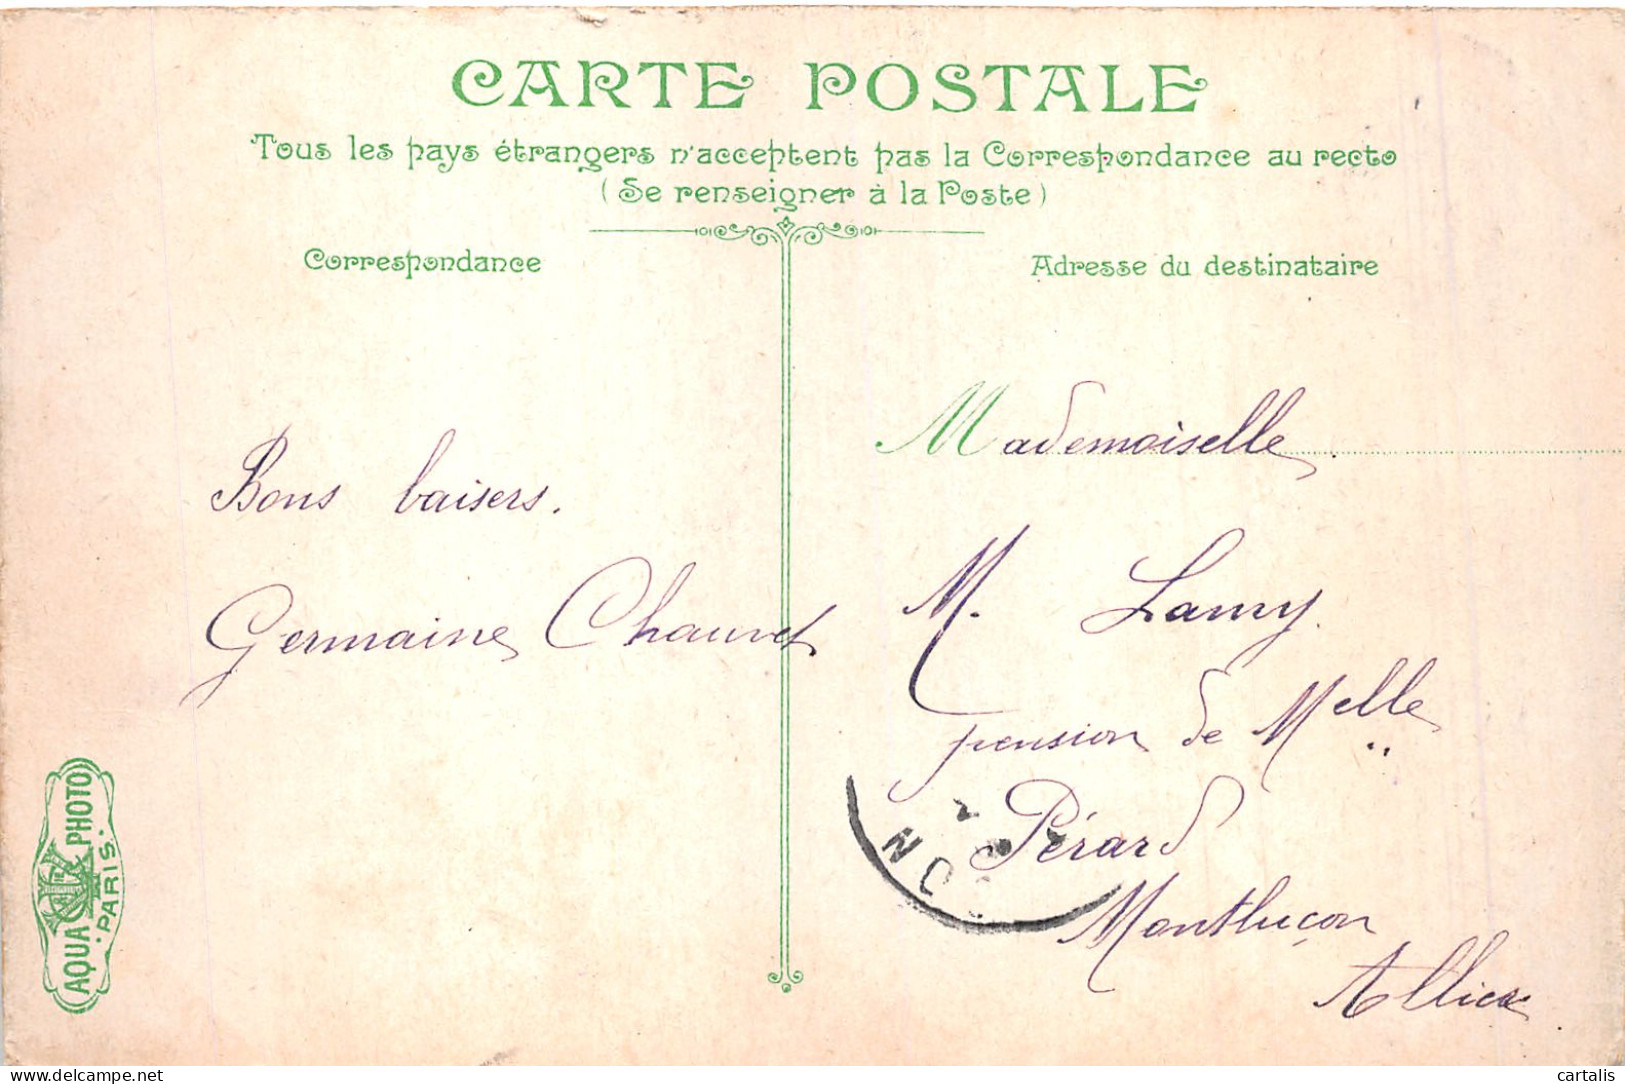 CARTE POSTALE
Tous les pays étrangers n'acceptent pas la Correspondance au recto
(Se renseigner à la Poste)
Correspondance
Adresse du destinataire
Bons baisers.
Germaine Chauvet
Mademoiselle
M. Lamy.
pension de Melle
Pérard
Montluçon
Allier
AQUA PHOTO
PARIS
cartalis